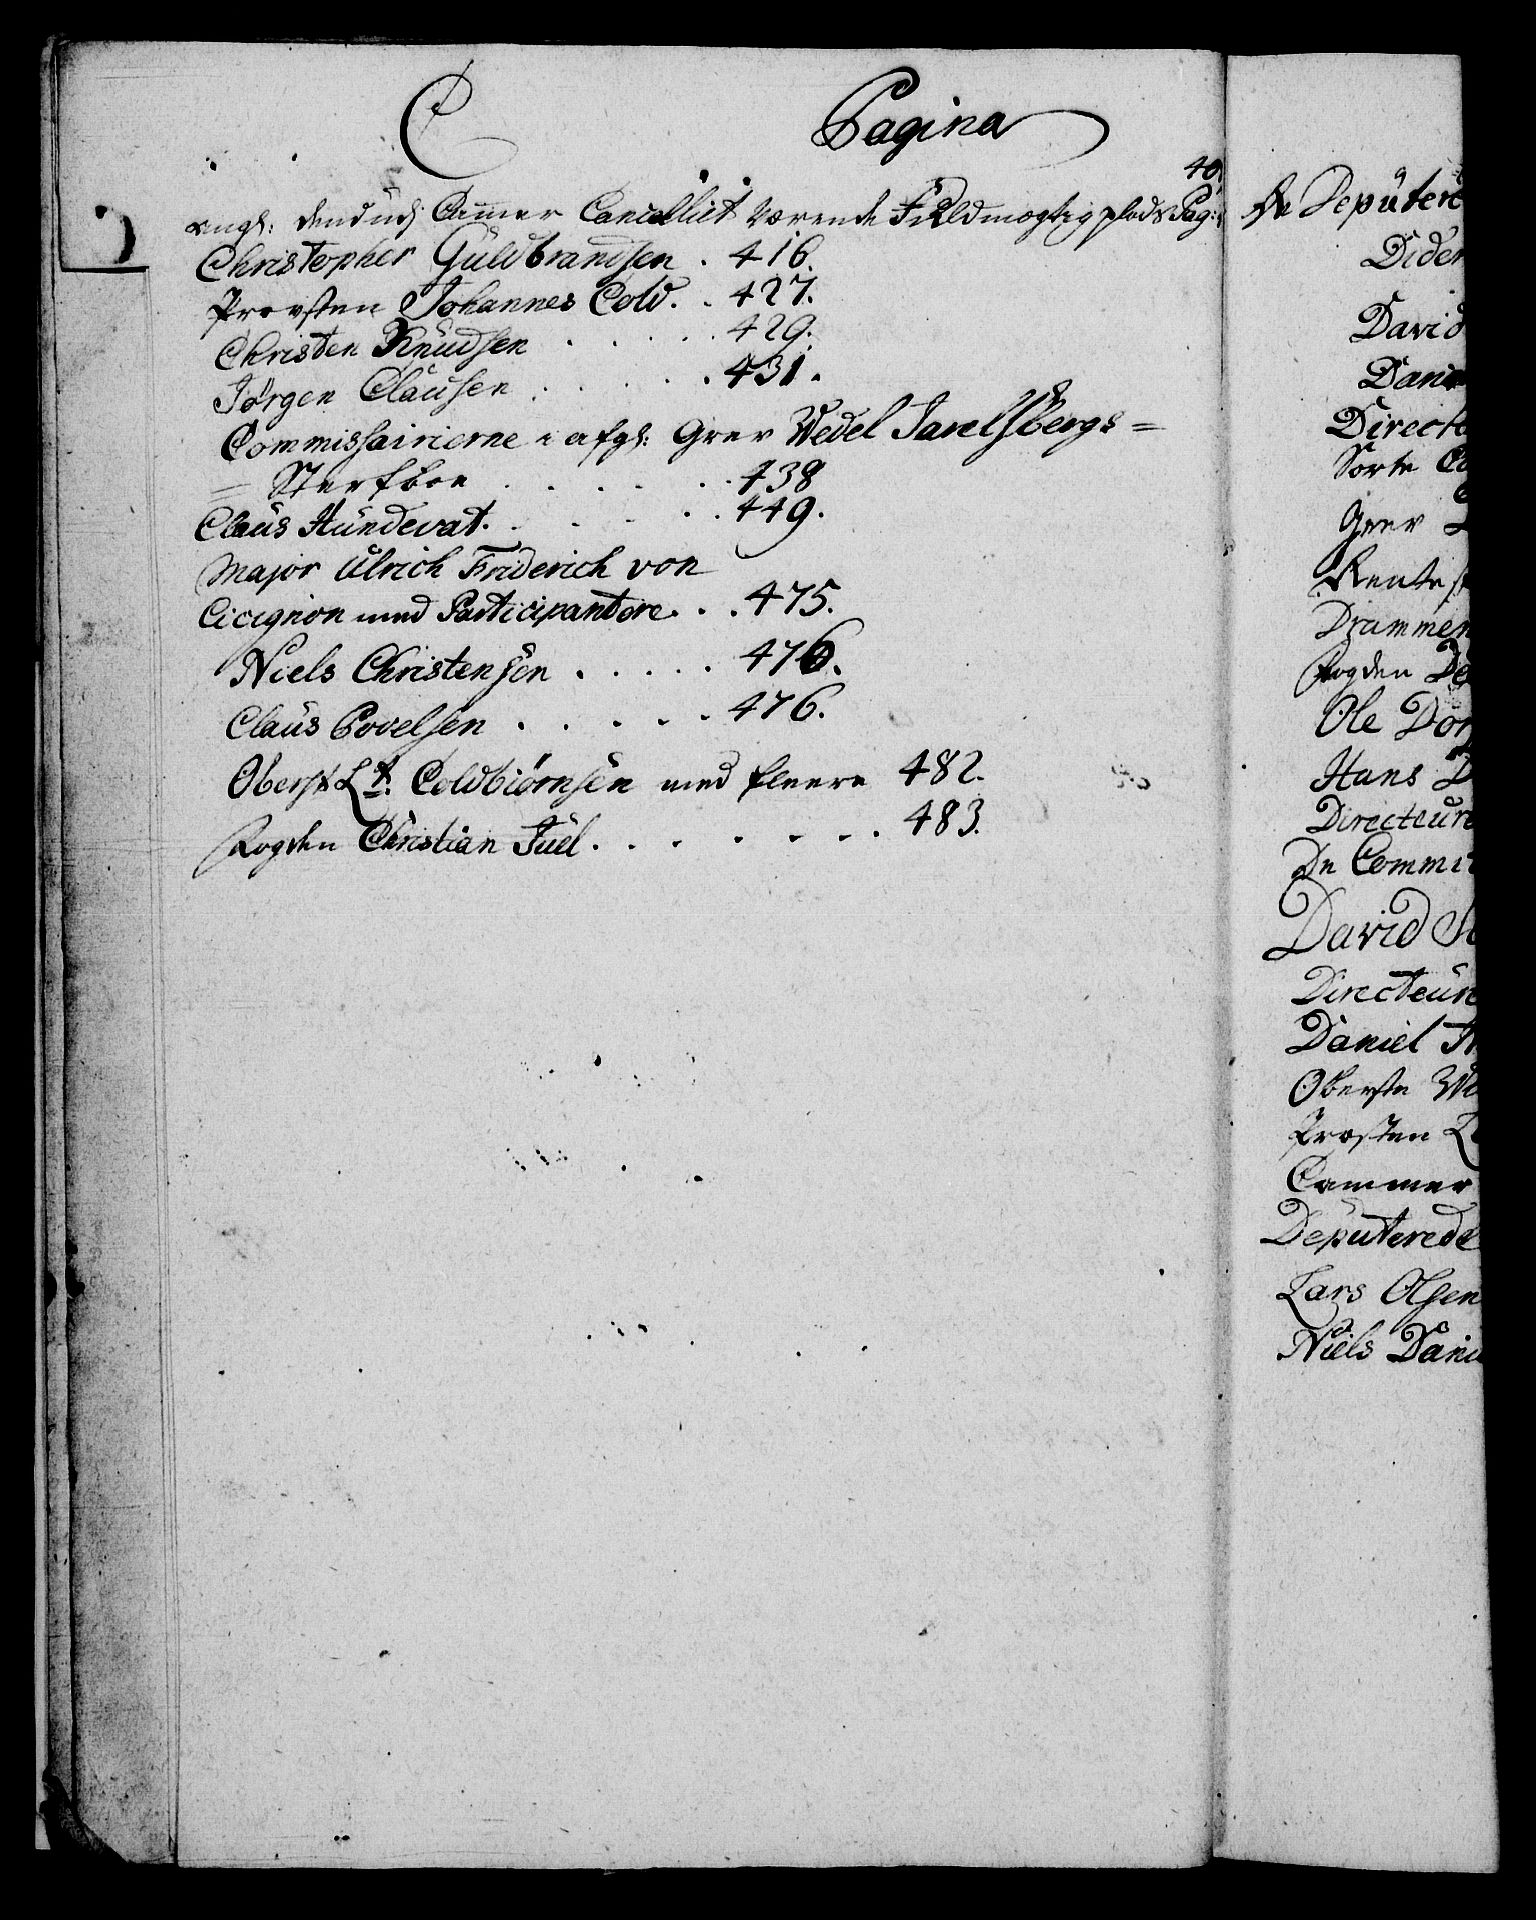 C Pagina
angl: dend udj Cammer Cancelliet værende Fuldmægtig plads Pag: 40
Christopher Guldbrandsen . 416.
Provsten Johannes Cold . . 427.
Christen Knudsen . . . . . 429.
Jørgen Clausen . . . . . 431.
Commissairierne i afgl: Grev Wedel Jarelsbergs =
= Sterfboe . . . . . . 438
Claus Hundevat . . . . . 449.
Major Ulrich Friderich von
Cicignon med Participantere . . . 475.
Niels Christensen . . . . . 476.
Claus Povelsen . . . . . 476.
Oberst Lt. Coldbiørnsen med fleere 482.
Fogden Christian Juel . . . . . . . 483.
De Deputere
Dider
David
Dani
Directe
Sorte
Grev
Rente
Drammen
Fogden De
Ole Dor
Hans D
Directeure
De Commit
David
Directeure
Daniel
Oberste
Prosten
Cammer
Deputerede
Lars Olsen
Niels Danie